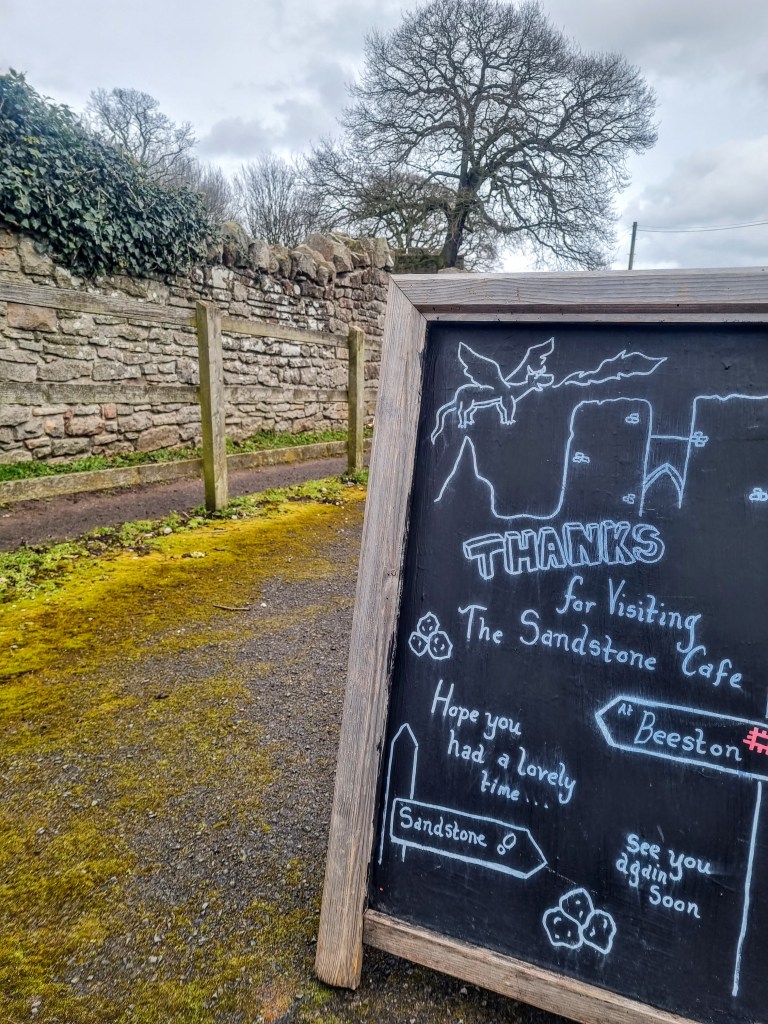 THANKS
for Visiting
The Sandstone Cafe
At Beeston
Hope you
had a lovely
time...
Sandstone
See you
again
Soon